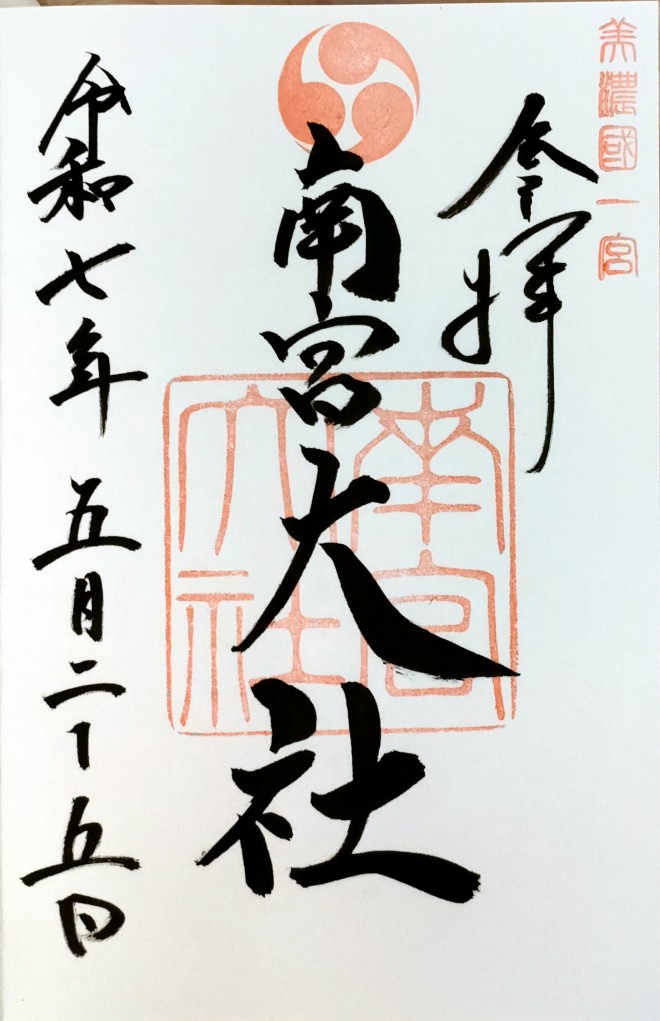 美濃國一宮
参拝
南宮大社
南宮大社
令和七年 五月二十五日